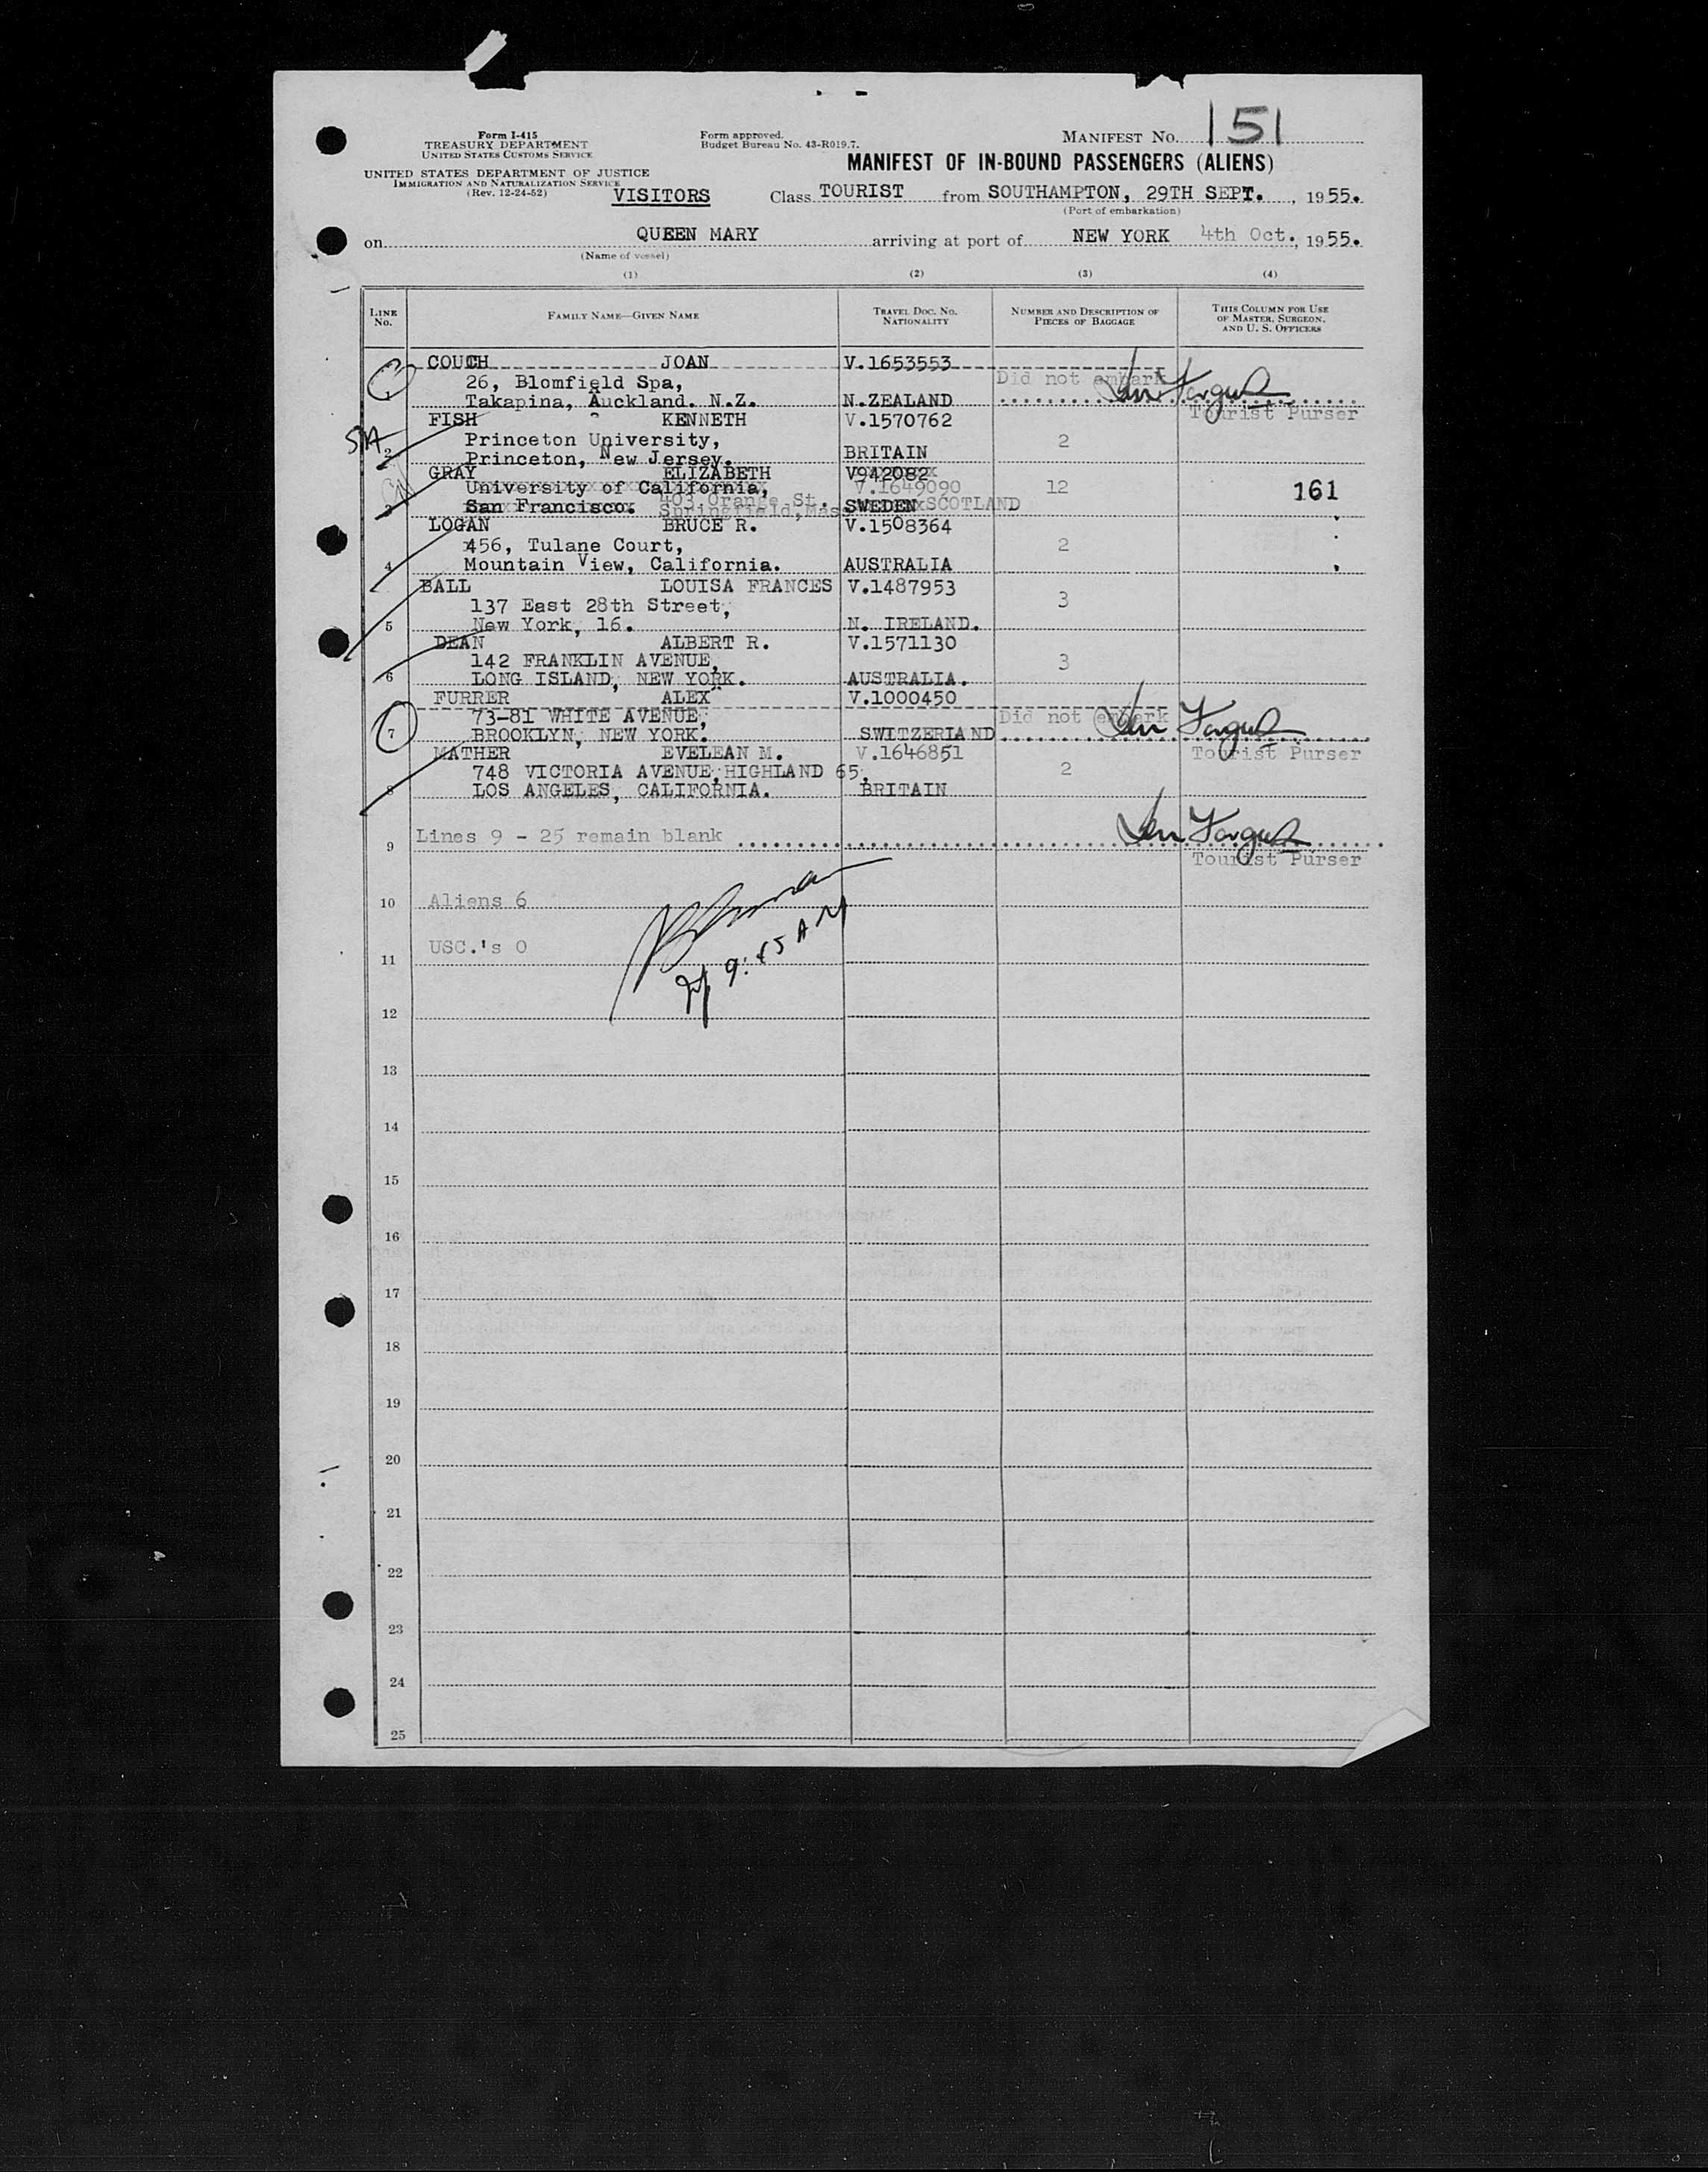 151
Form I-415
TREASURY DEPARTMENT
UNITED STATES CUSTOMS SERVICE
Form approved.
Budget Bureau No. 43-R019.7.
MANIFEST No.
MANIFEST OF IN-BOUND PASSENGERS (ALIENS)
UNITED STATES DEPARTMENT OF JUSTICE
IMMIGRATION AND NATURALIZATION SERVICE
(Rev. 12-24-52)
VISITORS Class TOURIST from SOUTHAMPTON, 29TH SEPT., 1955.
(Port of embarkation)
on QUEEN MARY arriving at port of NEW YORK 4th Oct., 1955.
(Name of vessel)
(1) (2) (3) (4)
LINE No. FAMILY NAME—GIVEN NAME TRAVEL DOC. No. NATIONALITY NUMBER AND DESCRIPTION OF PIECES OF BAGGAGE THIS COLUMN FOR USE OF MASTER, SURGEON, AND U. S. OFFICERS
COUCH JOAN V.1653553
26, Blomfield Spa, Did not embark
1 Takapina, Auckland. N.Z. N.ZEALAND
Tourist Purser
FISH KENNETH V.1570762
Princeton University, 2
2 Princeton, New Jersey. BRITAIN
GRAY ELIZABETH V942082
University of California, V.1649090 12 161
403 Orange St.
3 San Francisco. Springfield, Mass SWEDEN SCOTLAND
LOGAN BRUCE R. V.1508364
456, Tulane Court, 2
4 Mountain View, California. AUSTRALIA
BALL LOUISA FRANCES V.1487953
137 East 28th Street, 3
5 New York, 16. N. IRELAND.
DEAN ALBERT R. V.1571130
142 FRANKLIN AVENUE, 3
6 LONG ISLAND, NEW YORK. AUSTRALIA.
FURRER ALEX V.1000450
73-81 WHITE AVENUE, Did not embark
7 BROOKLYN, NEW YORK. SWITZERLAND
MATHER EVELEAN M. V.1646851 Tourist Purser
748 VICTORIA AVENUE, HIGHLAND 65, 2
8 LOS ANGELES, CALIFORNIA. BRITAIN
9 Lines 9 - 25 remain blank
Tourist Purser
10 Aliens 6
11 USC.'s 0
9:45 AM
12
13
14
15
16
17
18
19
20
21
22
23
24
25